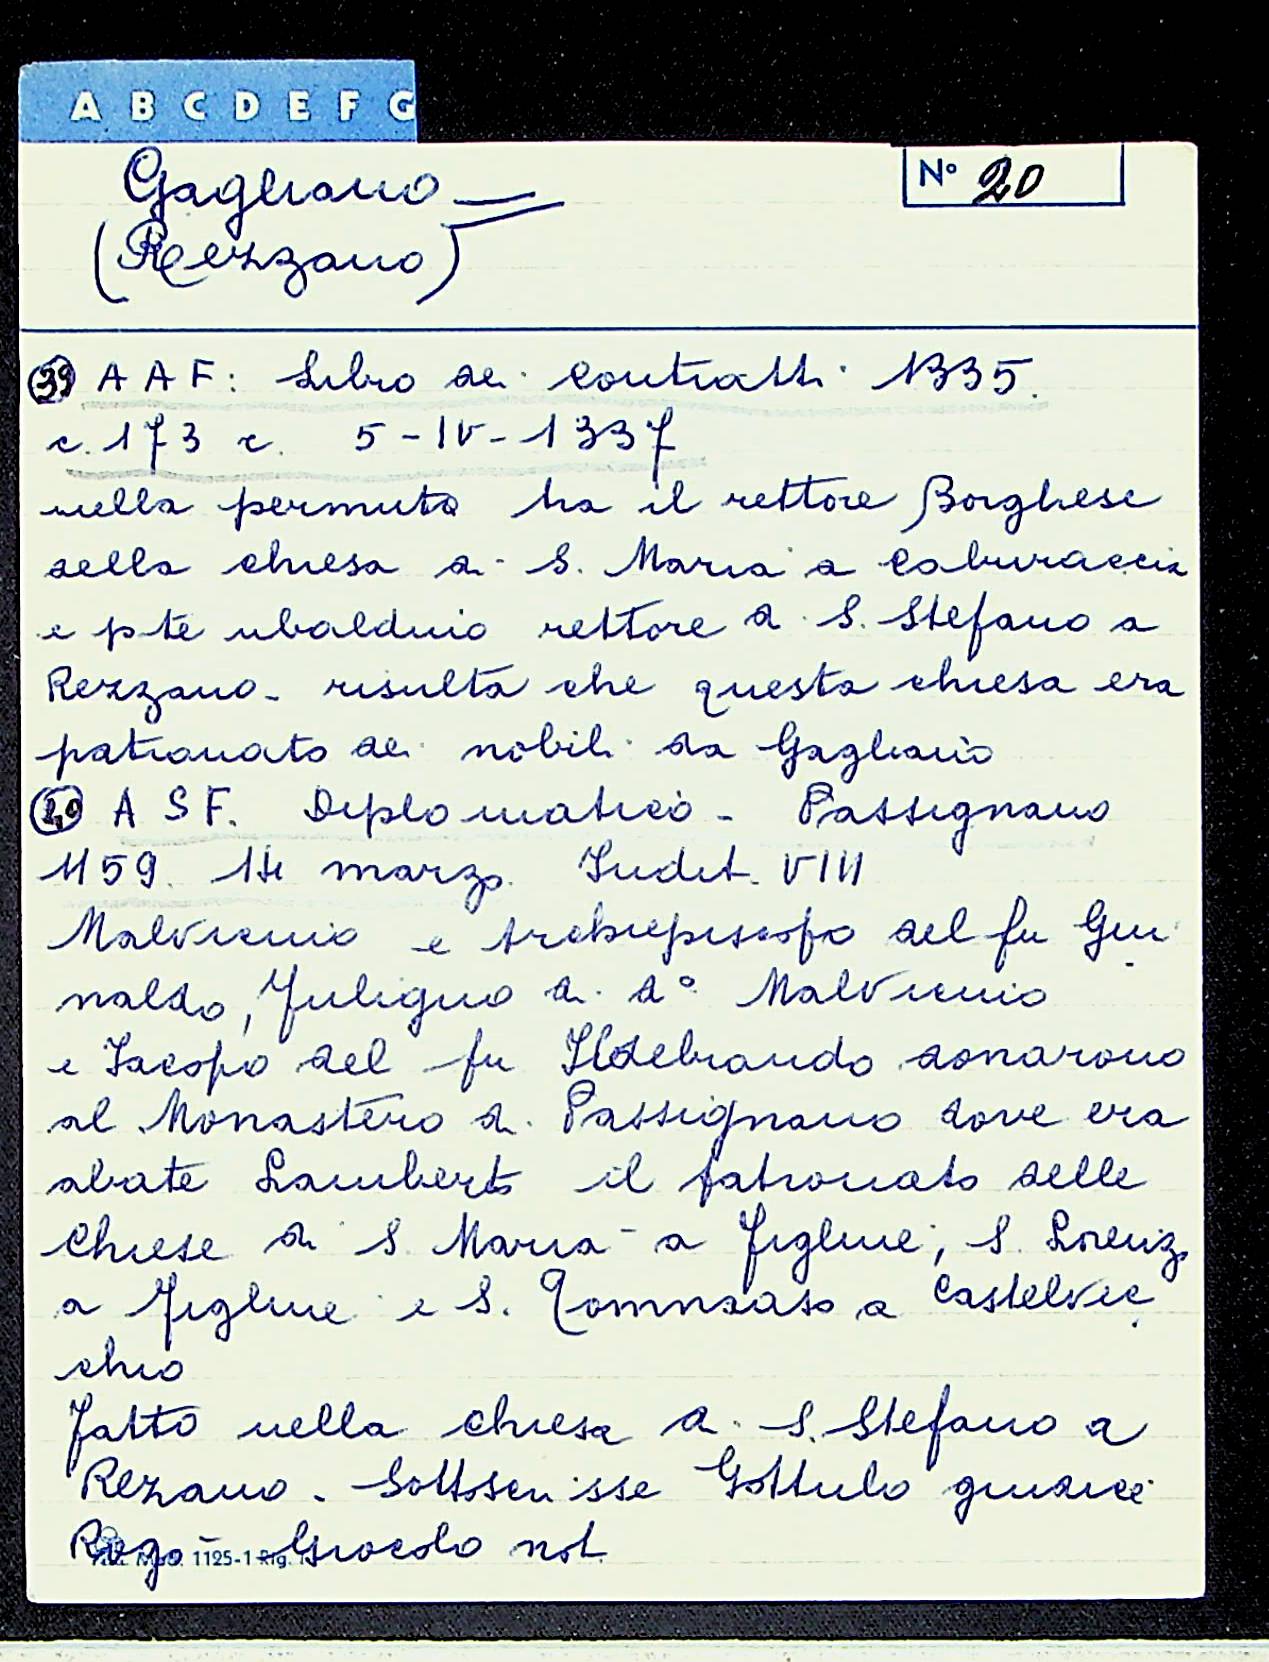 A B C D E F G
Gagliano
(Rezzano)
N° 20
39 A A F: Libro dei contratti 1335.
c. 173 r. 5-IV-1337
nella permuta tra il rettore Borghese
della chiesa di S. Maria a Caburaccia
e pte Ubaldino rettore di S. Stefano a
Rezzano - risulta che questa chiesa era
patronato dei nobili da Gagliano
40 A S F. Diplomatico - Passignano
1159. 14 marzo Indit. VIII
Malvicino e Archiepiscopo del fu Gui
naldo, Fuligno di d° Malvicino
e Iacopo del fu Ildebrando donarono
al Monastero di Passignano dove era
abate Lamberto il patronato delle
Chiese di S. Maria a Figline, S. Lorenzo
a Figline e S. Tommaso a Castelvec
chio
fatto nella chiesa di S. Stefano a
Rezano. Sottoscrisse Gottulo giudice
Rogò Giocolo not.
1125-1 Rig.